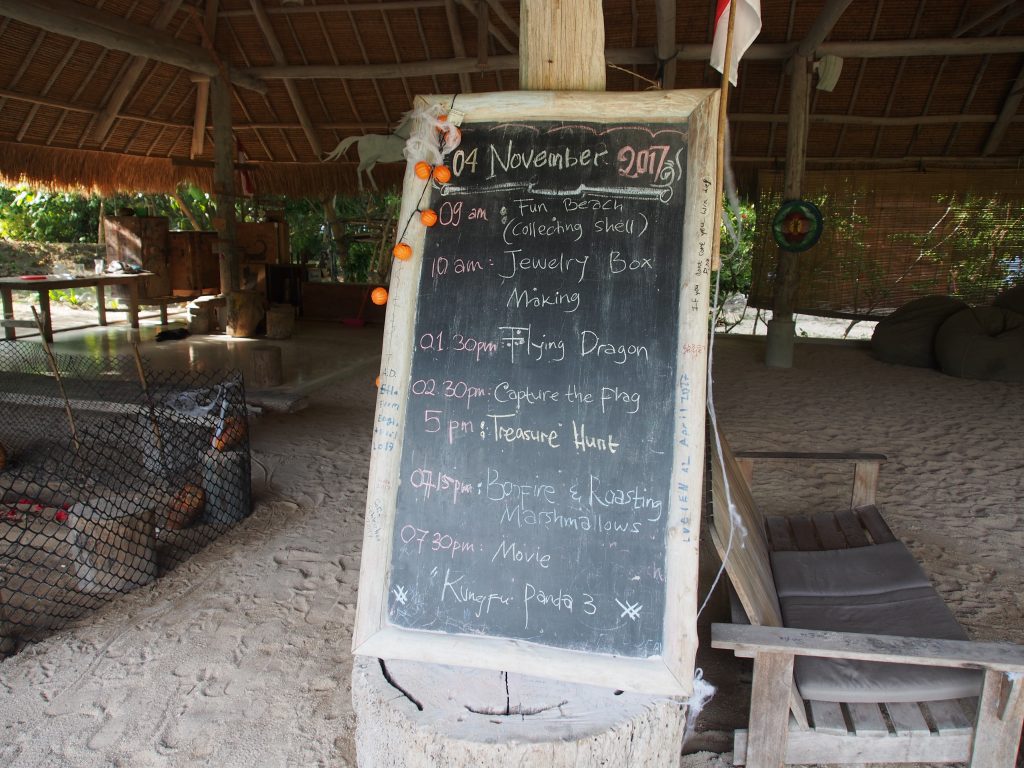 04 November 2017
09 am : Fun Beach
(collecting shell)
10 am : Jewelry Box
Making
01.30pm Flying Dragon
02.30pm : Capture the Flag
5 pm : Treasure Hunt
07.15pm : Bonfire & Roasting
Marshmallows
07 30pm : Movie
"Kungfu Panda 3
If you dont care you
April 2017